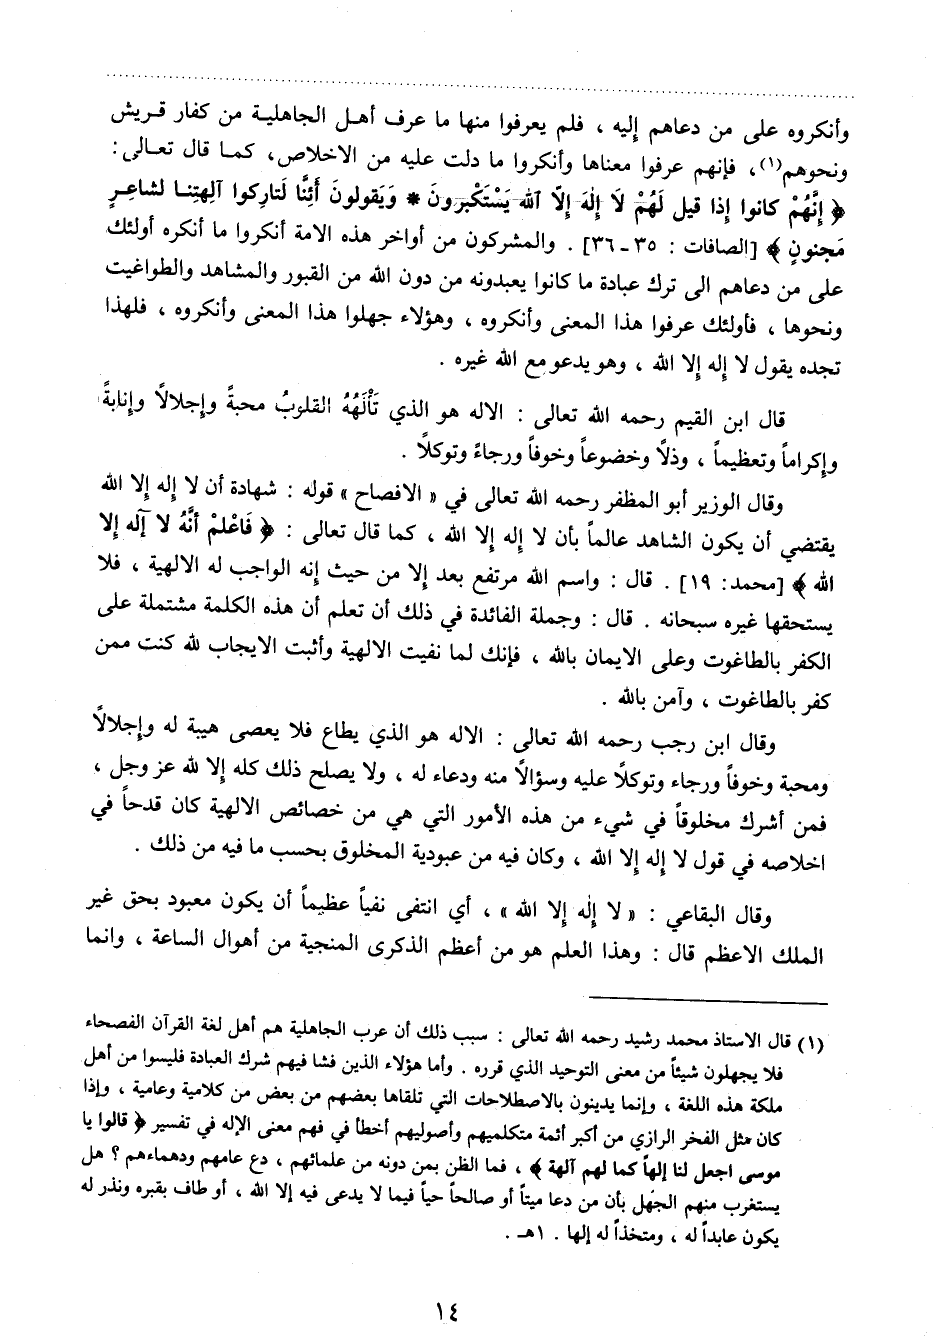 وأنكروه على من دعاهم إليه ، فلم يعرفوا منها ما عرف أهل الجاهلية من كفار قريش
ونحوهم(١)، فإنهم عرفوا معناها وأنكروا ما دلت عليه من الاخلاص، كما قال تعالى:
﴿ إِنَّهُمْ كانوا إِذا قيل لَهُمْ لا إِلٰهَ إِلاّ الله يَسْتَكْبِرونَ * وَيَقولونَ أَئِنَّا لَتارِكوا آلِهتِنـا لشاعِرٍ
مَجنونٍ ﴾ [الصافات : ٣٥ـ٣٦] . والمشركون من أواخر هذه الامة أنكروا ما أنكره أولئك
على من دعاهم الى ترك عبادة ما كانوا يعبدونه من دون الله من القبور والمشاهد والطواغيت
ونحوها ، فأولئك عرفوا هذا المعنى وأنكروه ، وهؤلاء جهلوا هذا المعنى وأنكروه ، فلهذا
تجده يقول لا إله إلا الله ، وهو يدعو مع الله غيره .
قال ابن القيم رحمه الله تعالى : الاله هو الذي تَأْلَهُهُ القلوبُ محبةً وإجلالاً وإنابةً
وإكراماً وتعظيماً ، وذلّا وخضوعاً وخوفاً ورجاءً وتوكلاً .
وقال الوزير أبو المظفر رحمه الله تعالى في « الافصاح » قوله : شهادة أن لا إله إلا الله
يقتضي أن يكون الشاهد عالماً بأن لا إله إلا الله ، كما قال تعالى : ﴿ فَاعْلمْ أنَّهُ لا آله إلا
الله ﴾ [محمد: ١٩] . قال : واسم الله مرتفع بعد إلا من حيث إنه الواجب له الالهية ، فلا
يستحقها غيره سبحانه . قال : وجملة الفائدة في ذلك أن تعلم أن هذه الكلمة مشتملة على
الكفر بالطاغوت وعلى الايمان بالله ، فإنك لما نفيت الالهية وأثبت الايجاب لله كنت ممن
كفر بالطاغوت ، وآمن بالله .
وقال ابن رجب رحمه الله تعالى : الاله هو الذي يطاع فلا يعصى هيبة له وإجلالاً
ومحبة وخوفاً ورجاء وتوكلاً عليه وسؤالاً منه ودعاء له ، ولا يصلح ذلك كله إلا لله عز وجل ،
فمن أشرك مخلوقاً في شيء من هذه الأمور التي هي من خصائص الالهية كان قدحاً في
اخلاصه في قول لا إله إلا الله ، وكان فيه من عبودية المخلوق بحسب ما فيه من ذلك .
وقال البقاعي : « لا إلٰه إلا الله » ، أي انتفى نفياً عظيماً أن يكون معبود بحق غير
الملك الاعظم قال : وهذا العلم هو من أعظم الذكرى المنجية من أهوال الساعة ، وانما
(١) قال الاستاذ محمد رشيد رحمه الله تعالى : سبب ذلك أن عرب الجاهلية هم أهل لغة القرآن الفصحاء
فلا يجهلون شيئاً من معنى التوحيد الذي قرره . وأما هؤلاء الذين فشا فيهم شرك العبادة فليسوا من أهل
ملكة هذه اللغة ، وإنما يدينون بالاصطلاحات التي تلقاها بعضهم من بعض من كلامية وعامية ، وإذا
كان مثل الفخر الرازي من أكبر أئمة متكلميهم وأصوليهم أخطأ في فهم معنى الإله في تفسير ﴿ قالوا يا
موسى اجعل لنا إلهاً كما لهم آلهة ﴾ ، فما الظن بمن دونه من علمائهم ، دع عامهم ودهماءهم ؟ هل
يستغرب منهم الجهل بأن من دعا ميتاً أو صالحاً حياً فيما لا يدعى فيه إلا الله ، أو طاف بقبره ونذر له
يكون عابداً له ، ومتخذاً له إلها . ١هـ .
١٤